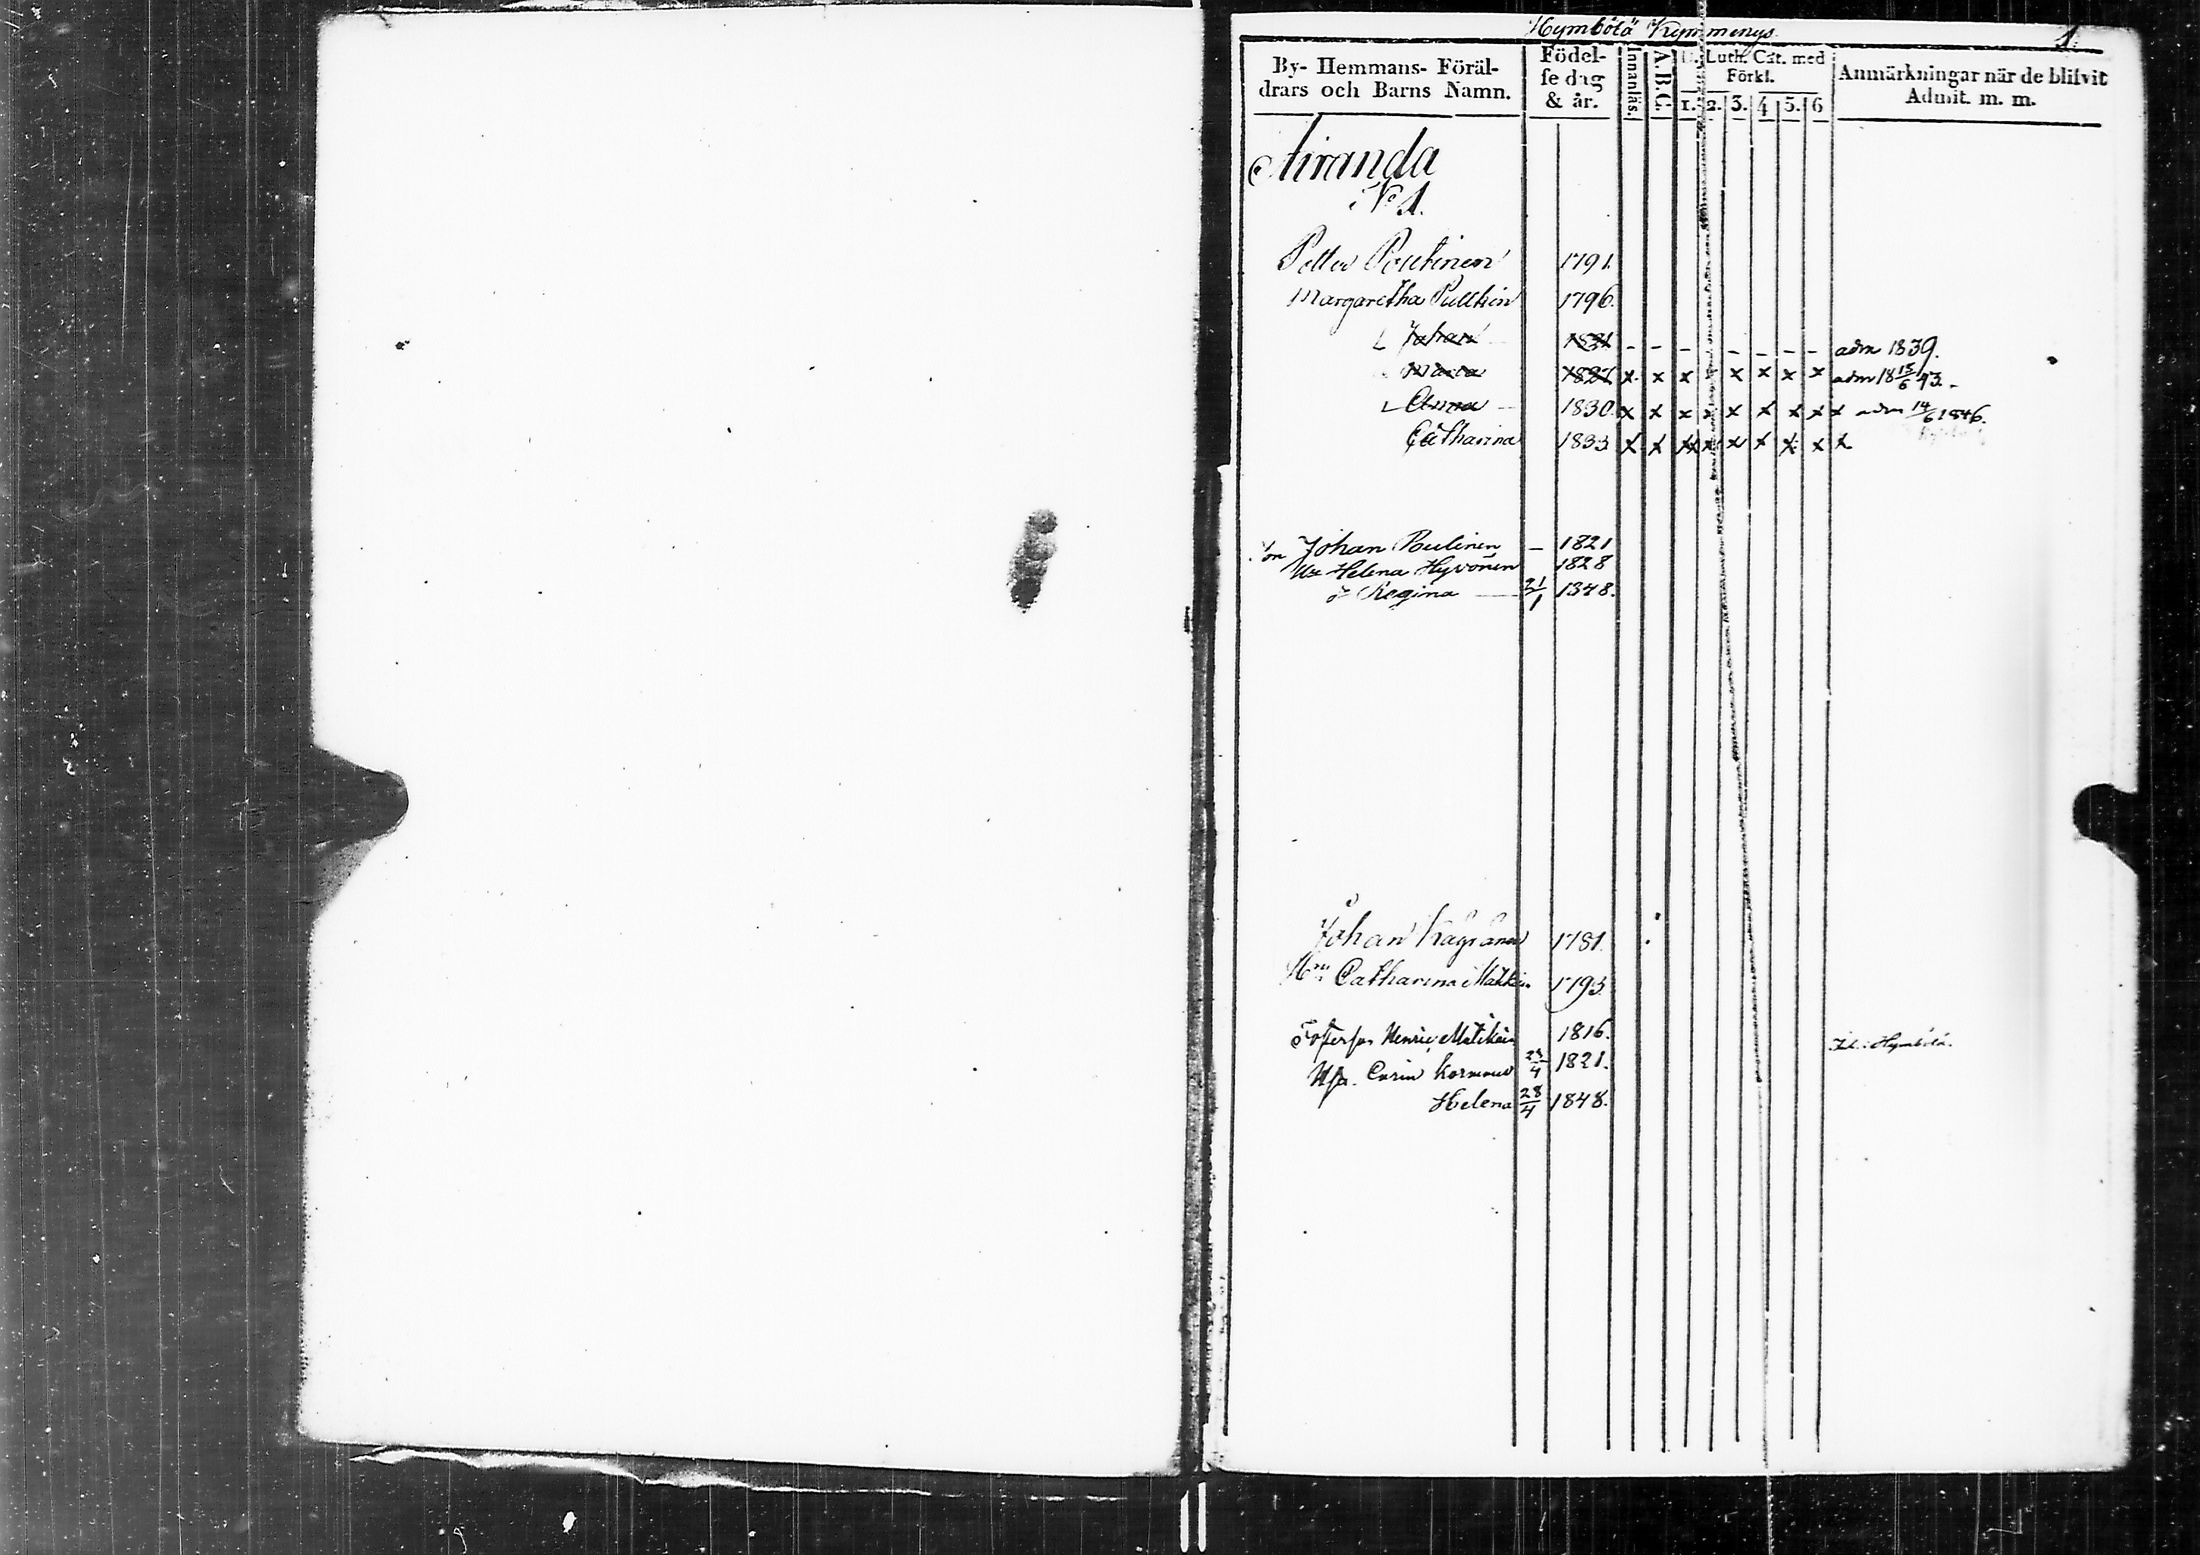 Hymbölä Kymmenys. 1.
By- Hemmans- Föräl-
drars och Barns Namn.
Födel-
se dag
& år.
Innanläs.
A.B.C.
Luth. Cat. med
Förkl.
1. 2. 3. 4 5. 6
Anmärkningar när de blifvit
Admit. m. m.
Airanda
No 1.
Petter Poutinen 1791.
Margaretha Pulkin 1796.
Johan 1821 - - - - - - - - adm 1839.
Maria 1827 x x x x x x x x adm 18 15/6 43.
Anna 1830. x x x x x x x x x adm 14/6 1846.
Catharina 1833 x x x x x x x x x
Son Johan Poutinen - 1821
Hu Helena Hyvönen 1828
d Regina 21/1 1848.
Johan 1781.
Hu Catharina 1793
Fosterson Henric Matikain 1816.
Hu. Carin 23/4 1821.
Helena 28/4 1848.